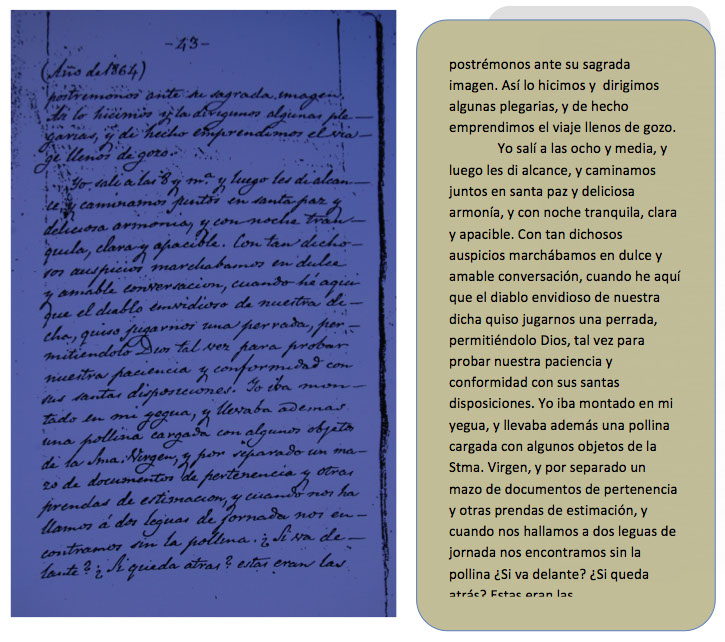 -43-
(Año de 1864)
postremonos ante su sagrada imagen.
Asi lo hicimos y la dirigimos algunas ple-
garias, y de hecho emprendimos el via-
ge llenos de gozo.
Yo sali a las 8 y mª y luego les di alcan-
ce, y caminamos juntos en santa paz y
deliciosa armonia, y con noche tran-
quila, clara y apacible. Con tan dicho-
sos auspicios marchabamos en dulce
y amable conversacion, cuando hé aqui
que el diablo envidioso de nuestra di-
cha, quiso jugarnos una perrada, per-
mitiendolo Dios tal vez para probar
nuestra paciencia y conformidad con
sus santas disposiciones. Yo iba mon-
tado en mi yegua, y llevaba ademas
una pollina cargada con algunos objetos
de la Sma. Virgen, y por separado un ma-
zo de documentos de pertenencia y otras
prendas de estimacion, y cuando nos ha
llamos á dos leguas de jornada nos en-
contramos sin la pollina. ¿Si va de-
lante? ¿Si queda atras? estas eran las
postrémonos ante su sagrada
imagen. Así lo hicimos y dirigimos
algunas plegarias, y de hecho
emprendimos el viaje llenos de gozo.
Yo salí a las ocho y media, y
luego les di alcance, y caminamos
juntos en santa paz y deliciosa
armonía, y con noche tranquila, clara
y apacible. Con tan dichosos
auspicios marchábamos en dulce y
amable conversación, cuando he aquí
que el diablo envidioso de nuestra
dicha quiso jugarnos una perrada,
permitiéndolo Dios, tal vez para
probar nuestra paciencia y
conformidad con sus santas
disposiciones. Yo iba montado en mi
yegua, y llevaba además una pollina
cargada con algunos objetos de la
Stma. Virgen, y por separado un
mazo de documentos de pertenencia
y otras prendas de estimación, y
cuando nos hallamos a dos leguas de
jornada nos encontramos sin la
pollina ¿Si va delante? ¿Si queda
atrás? Estas eran las